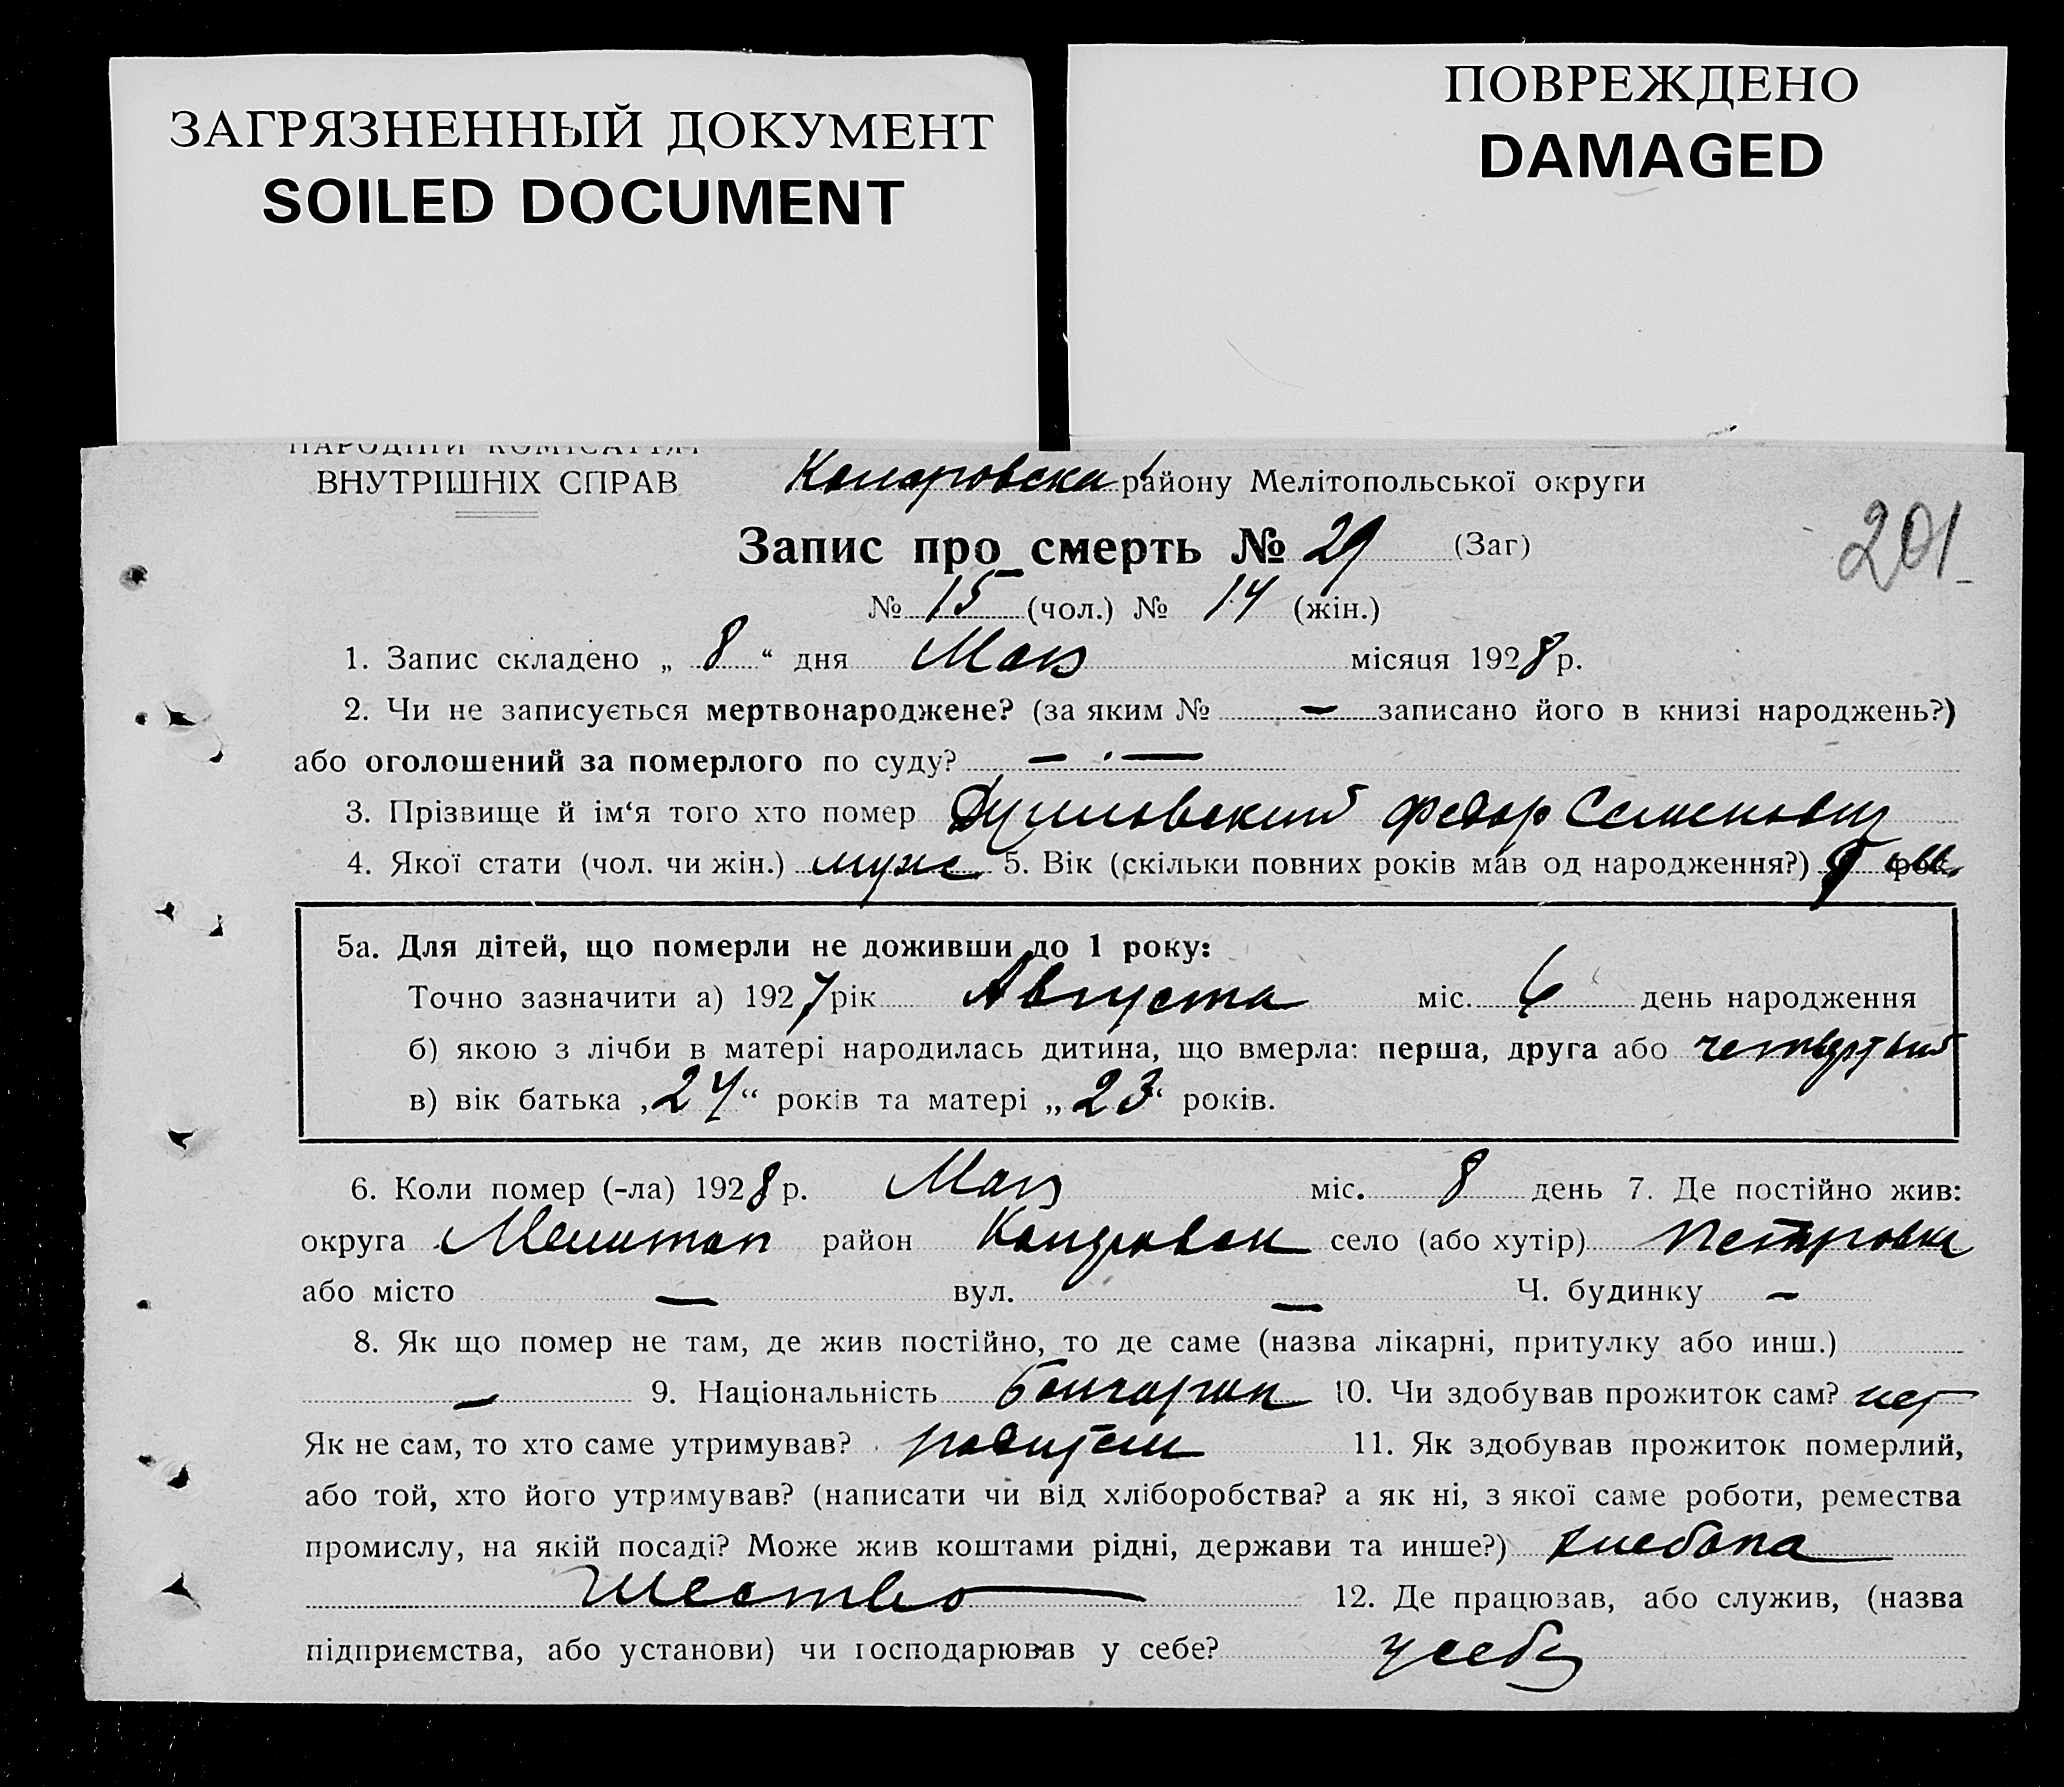 ЗАГРЯЗНЕННЫЙ ДОКУМЕНТ
SOILED DOCUMENT
ПОВРЕЖДЕНО
DAMAGED
ВНУТРІШНІХ СПРАВ району Мелітопольської округи
201
Запис про смерть № 29 (Заг)
№ 15 (чол.) № 14 (жін.)
1. Запис складено „ 8 “ дня Мая місяця 1928 р.
2. Чи не записується мертвонароджене? (за яким № — записано його в книзі народжень?)
або оголошений за померлого по суду? — —
3. Прізвище й ім‘я того хто помер Федор Семенович
4. Якої стати (чол. чи жін.) муж 5. Вік (скільки повних років мав од народження?)
5а. Для дітей, що померли не доживши до 1 року:
Точно зазначити а) 1927 рік Августа міс. 6 день народження
б) якою з лічби в матері народилась дитина, що вмерла: перша, друга або четвертый
в) вік батька „24“ років та матері „23“ років.
6. Коли помер (-ла) 1928 р. Мая міс. 8 день 7. Де постійно жив:
округа Мелитоп район село (або хутір) Петровка
або місто — вул. — Ч. будинку —
8. Як що помер не там, де жив постійно, то де саме (назва лікарні, притулку або инш.)
— 9. Національність болгарин 10. Чи здобував прожиток сам? нет
Як не сам, то хто саме утримував? родители 11. Як здобував прожиток померлий,
або той, хто його утримував? (написати чи від хліборобства? а як ні, з якої саме роботи, ремества
промислу, на якій посаді? Може жив коштами рідні, держави та инше?) хлебопа
шество 12. Де працював, або служив, (назва
підприємства, або установи) чи господарював у себе? у себя